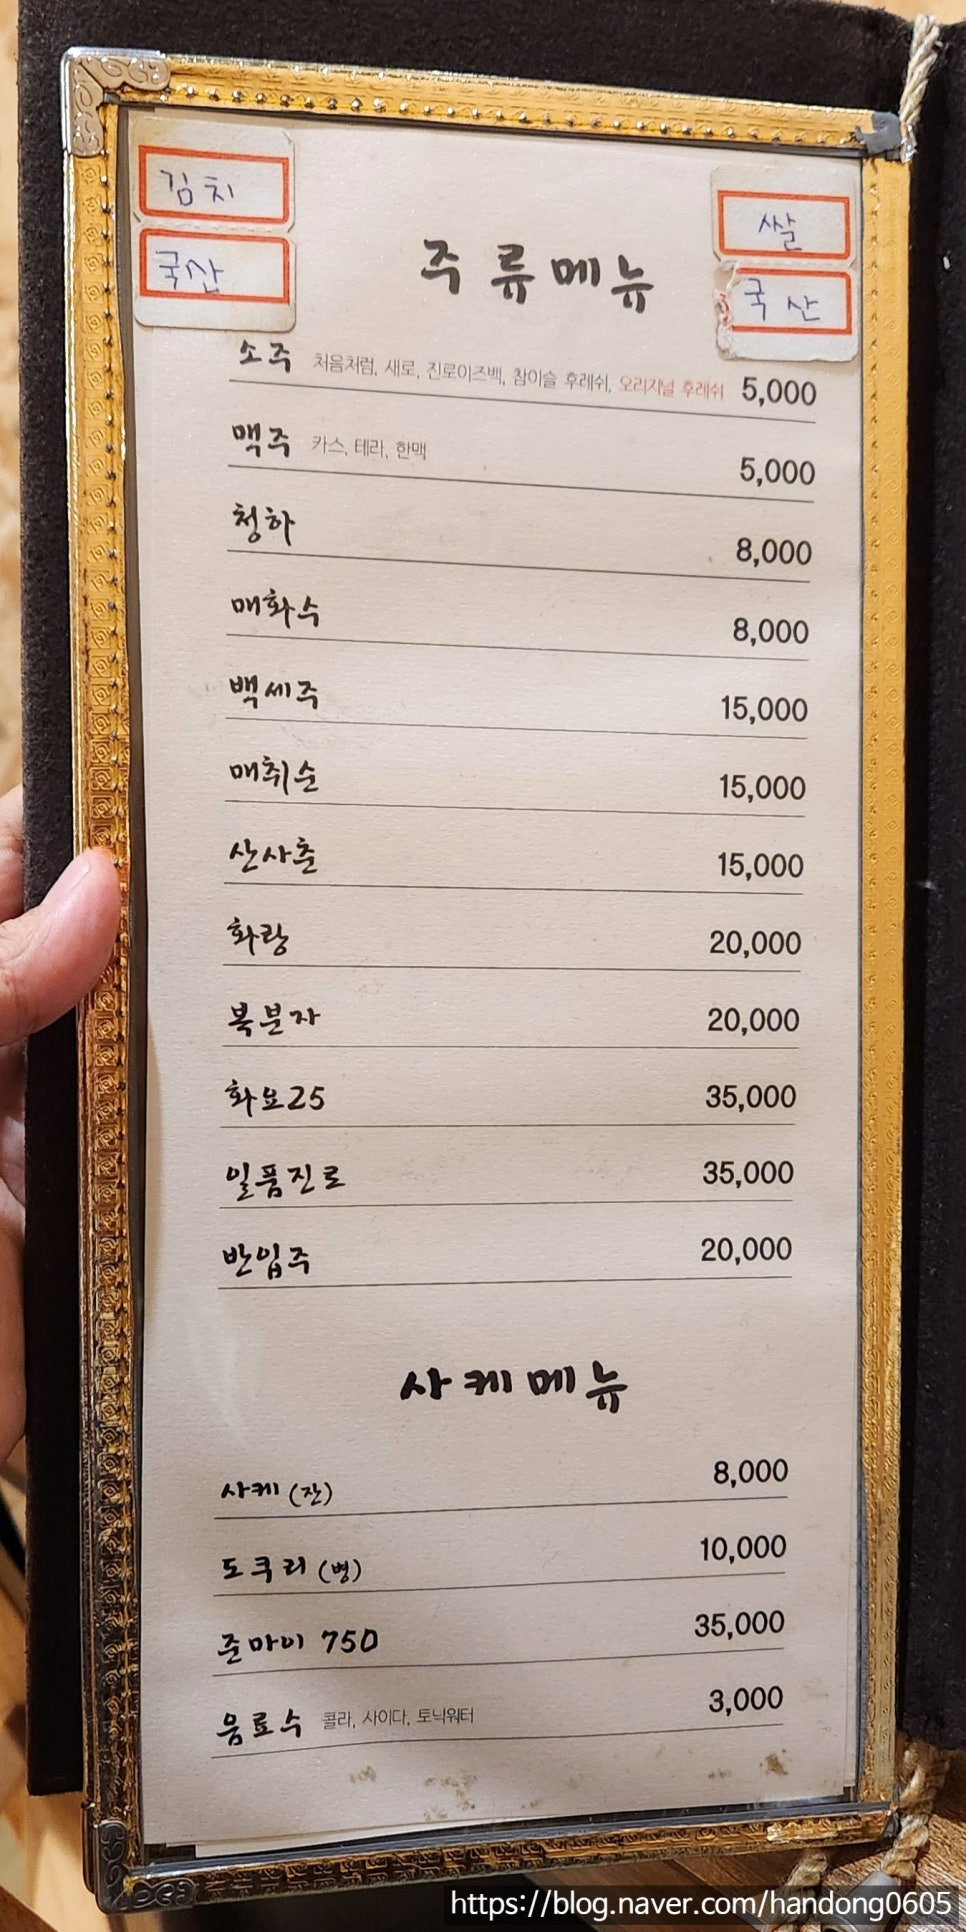 김치
국산
쌀
국산
주류메뉴
소주 처음처럼, 새로, 진로이즈백, 참이슬 후레쉬, 오리지널 후레쉬 5,000
맥주 카스, 테라, 한맥 5,000
청하 8,000
매화수 8,000
백세주 15,000
매취순 15,000
산사춘 15,000
화랑 20,000
복분자 20,000
화요25 35,000
일품진로 35,000
반입주 20,000
사케메뉴
사케(잔) 8,000
도쿠리(병) 10,000
준마이 750 35,000
음료수 콜라, 사이다, 토닉워터 3,000
https://blog.naver.com/handong0605